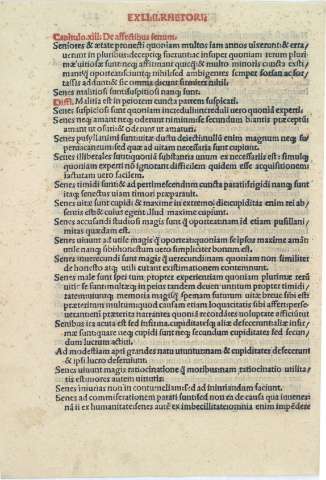 EX LI.II.RHETORI.
Capitulo.xiii: De affectibus senum.
Seniores & ætate prouecti quoniam multos iam annos uixerunt & erra
uerunt in pluribus: decepti
mala
Senes malitiosi sunt: suspitiosi nanq sunt.
Diffi. Malitia est in peiorem cuncta partem suspicari.
Senes suspitiosi sunt quoniam increduli: increduli uero quoniā experti.
Senes neq amant neq oderunt nimium: sed secundum biantis præceptū
amant ut osuri: & oderunt ut amaturi.
Senes pusyllanimi sunt: uitæ ductu deiecti: nullū enim magnum neq su
peruacaneum sed quæ ad uitam necessaria sunt cupiunt.
Senes illiberales sunt: quoniā substantia unum ex necessariis est: simulq
quoniam experti nō ignorant difficilem quidem esse acquisitionem
iacturam uero facilem.
Senes timidi sunt: & ad pertimescendum cuncta parati: frigidi nanq sunt
itaq senectus uiam timori præparauit.
Senes uitæ sunt cupidi & maxime in extremo die: cupiditas enim rei ab/
sentis est: & cuius egent illud maxime cupiunt.
Senes accusandi studiosi magis sunt q oporteat: nam id etiam pusillani/
mitas quædam est.
Senes uiuunt ad utile magis q oporteat: quoniam seipsos maxime amāt:
utile nanq sibi: honestum uero simpliciter bonum est.
Senes inuerecundi sunt magis q uerecundi: nam quoniam non similiter
de honesto atq utili curant existimationem contemnunt.
Senes male sunt spei tum propter experientiam quoniam plurimæ rerū
uitiosæ sunt: multæq in peius tandem deueniunt: tum propter timidi/
tatem: uiuunq memoria magis q spe: nam futurum uitæ breue sibi est:
præteritum multum: quod causam etiam loquacitatis sibi affert: perse/
uerant enim præterita narrantes quoniā recordādo uoluptate afficiunt
Senibus ira acuta est sed infirma. cupiditates q aliæ defecerunt: aliæ infir
mæ sunt: quare neq cupidi sunt neq secundum cupiditates sed secun/
dum lucrum actiui.
Ad modestiam apti grandes natu uidentur: nam & cupiditates defecerunt
& ipsi lucro deseruiunt.
Senes uiuunt magis ratiocinatione q moribus: nam ratiocinatio utilita/
tis est: mores autem uirtutis.
Senes iniurias non in contumeliam: sed ad iniuriandum faciunt.
Senes ad commiserationem parati sunt: sed non ea de causa qua iuuenes:
nā ii ex humanitate: senes autē ex imbecillitate: omnia enim impēdere